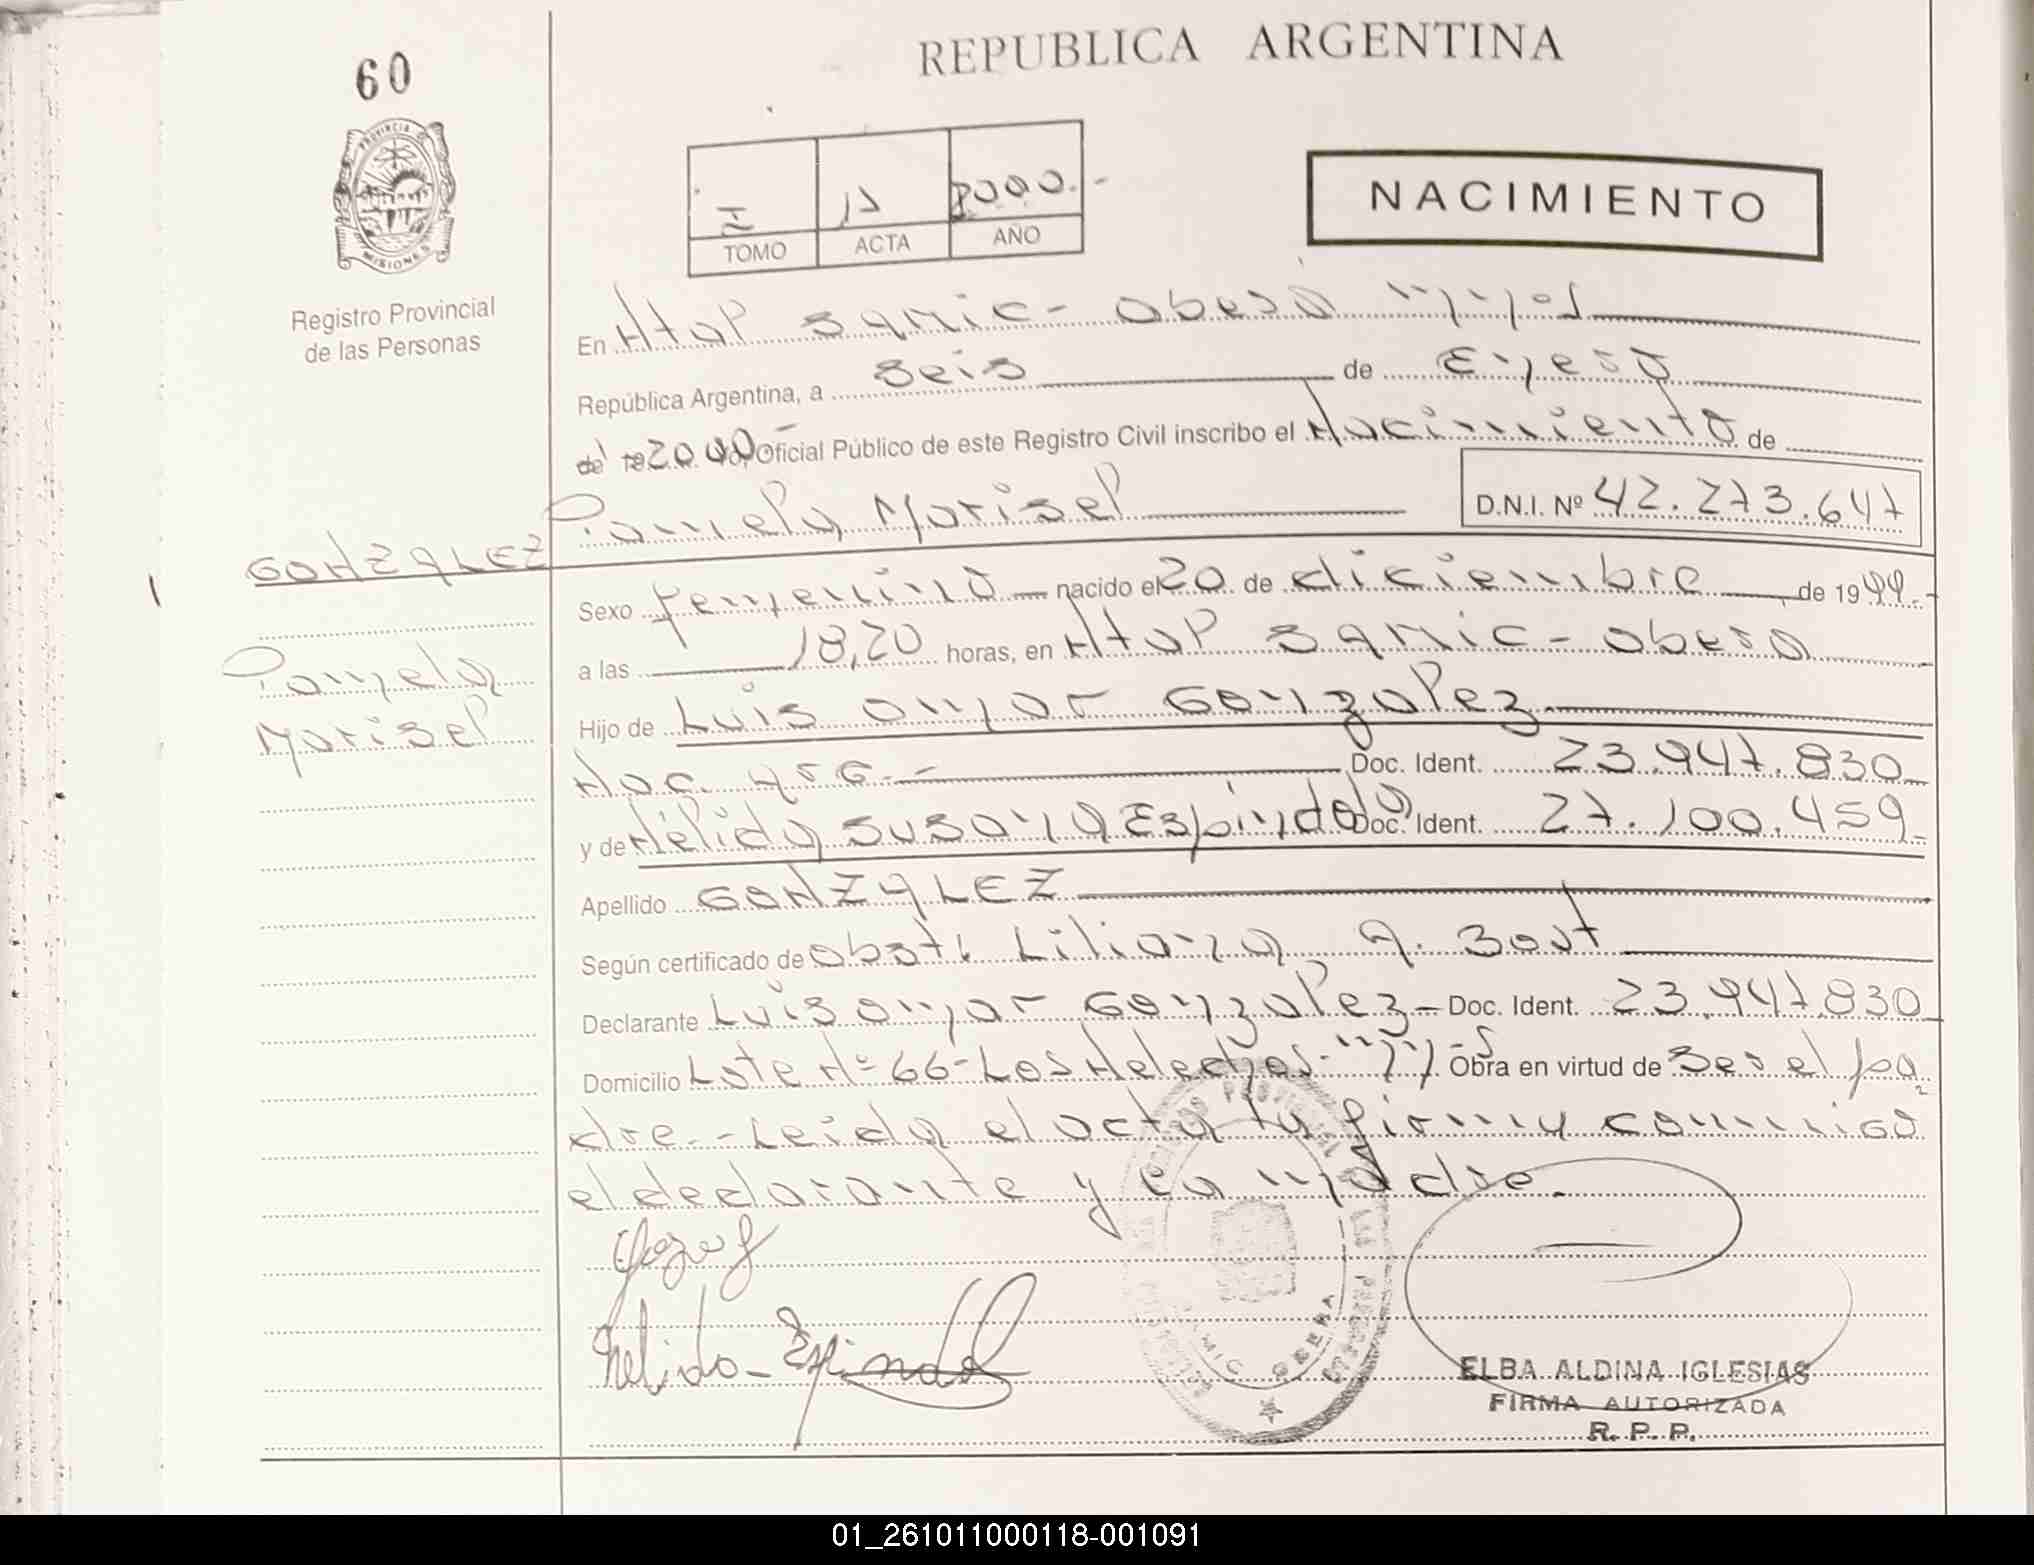 60
REPUBLICA ARGENTINA
PROVINCIA
MISIONES
Registro Provincial
de las Personas
I 17 2000.-
TOMO ACTA AÑO
NACIMIENTO
En Htal Samic - Obera Mnes
República Argentina, a seis de Enero
del 2000 Yo, Oficial Público de este Registro Civil inscribo el Nacimiento de
Pamela Marisel D.N.I. Nº 42.273.647
GONZALEZ
Pamela
Marisel
Sexo femenino nacido el 20 de diciembre de 1999.-
a las 18,20 horas, en Htal Samic - Obera
Hijo de Luis Omar Gonzalez
Nac. Arg.- Doc. Ident. 23.947.830
y de Nelida Susana Espindola Doc. Ident. 27.100.459
Apellido GONZALEZ
Según certificado de Obst. Liliana A.
Declarante Luis Omar Gonzalez - Doc. Ident. 23.947.830
Domicilio Lote Nº 66 - Los Helechos - Obra en virtud de ser el pa
dre.- Leida el acta la firman conmigo
el declarante y la madre.
Nelida Espindola
SAMIC OBERA
ELBA ALDINA IGLESIAS
FIRMA AUTORIZADA
R. P. P.
01_261011000118-001091